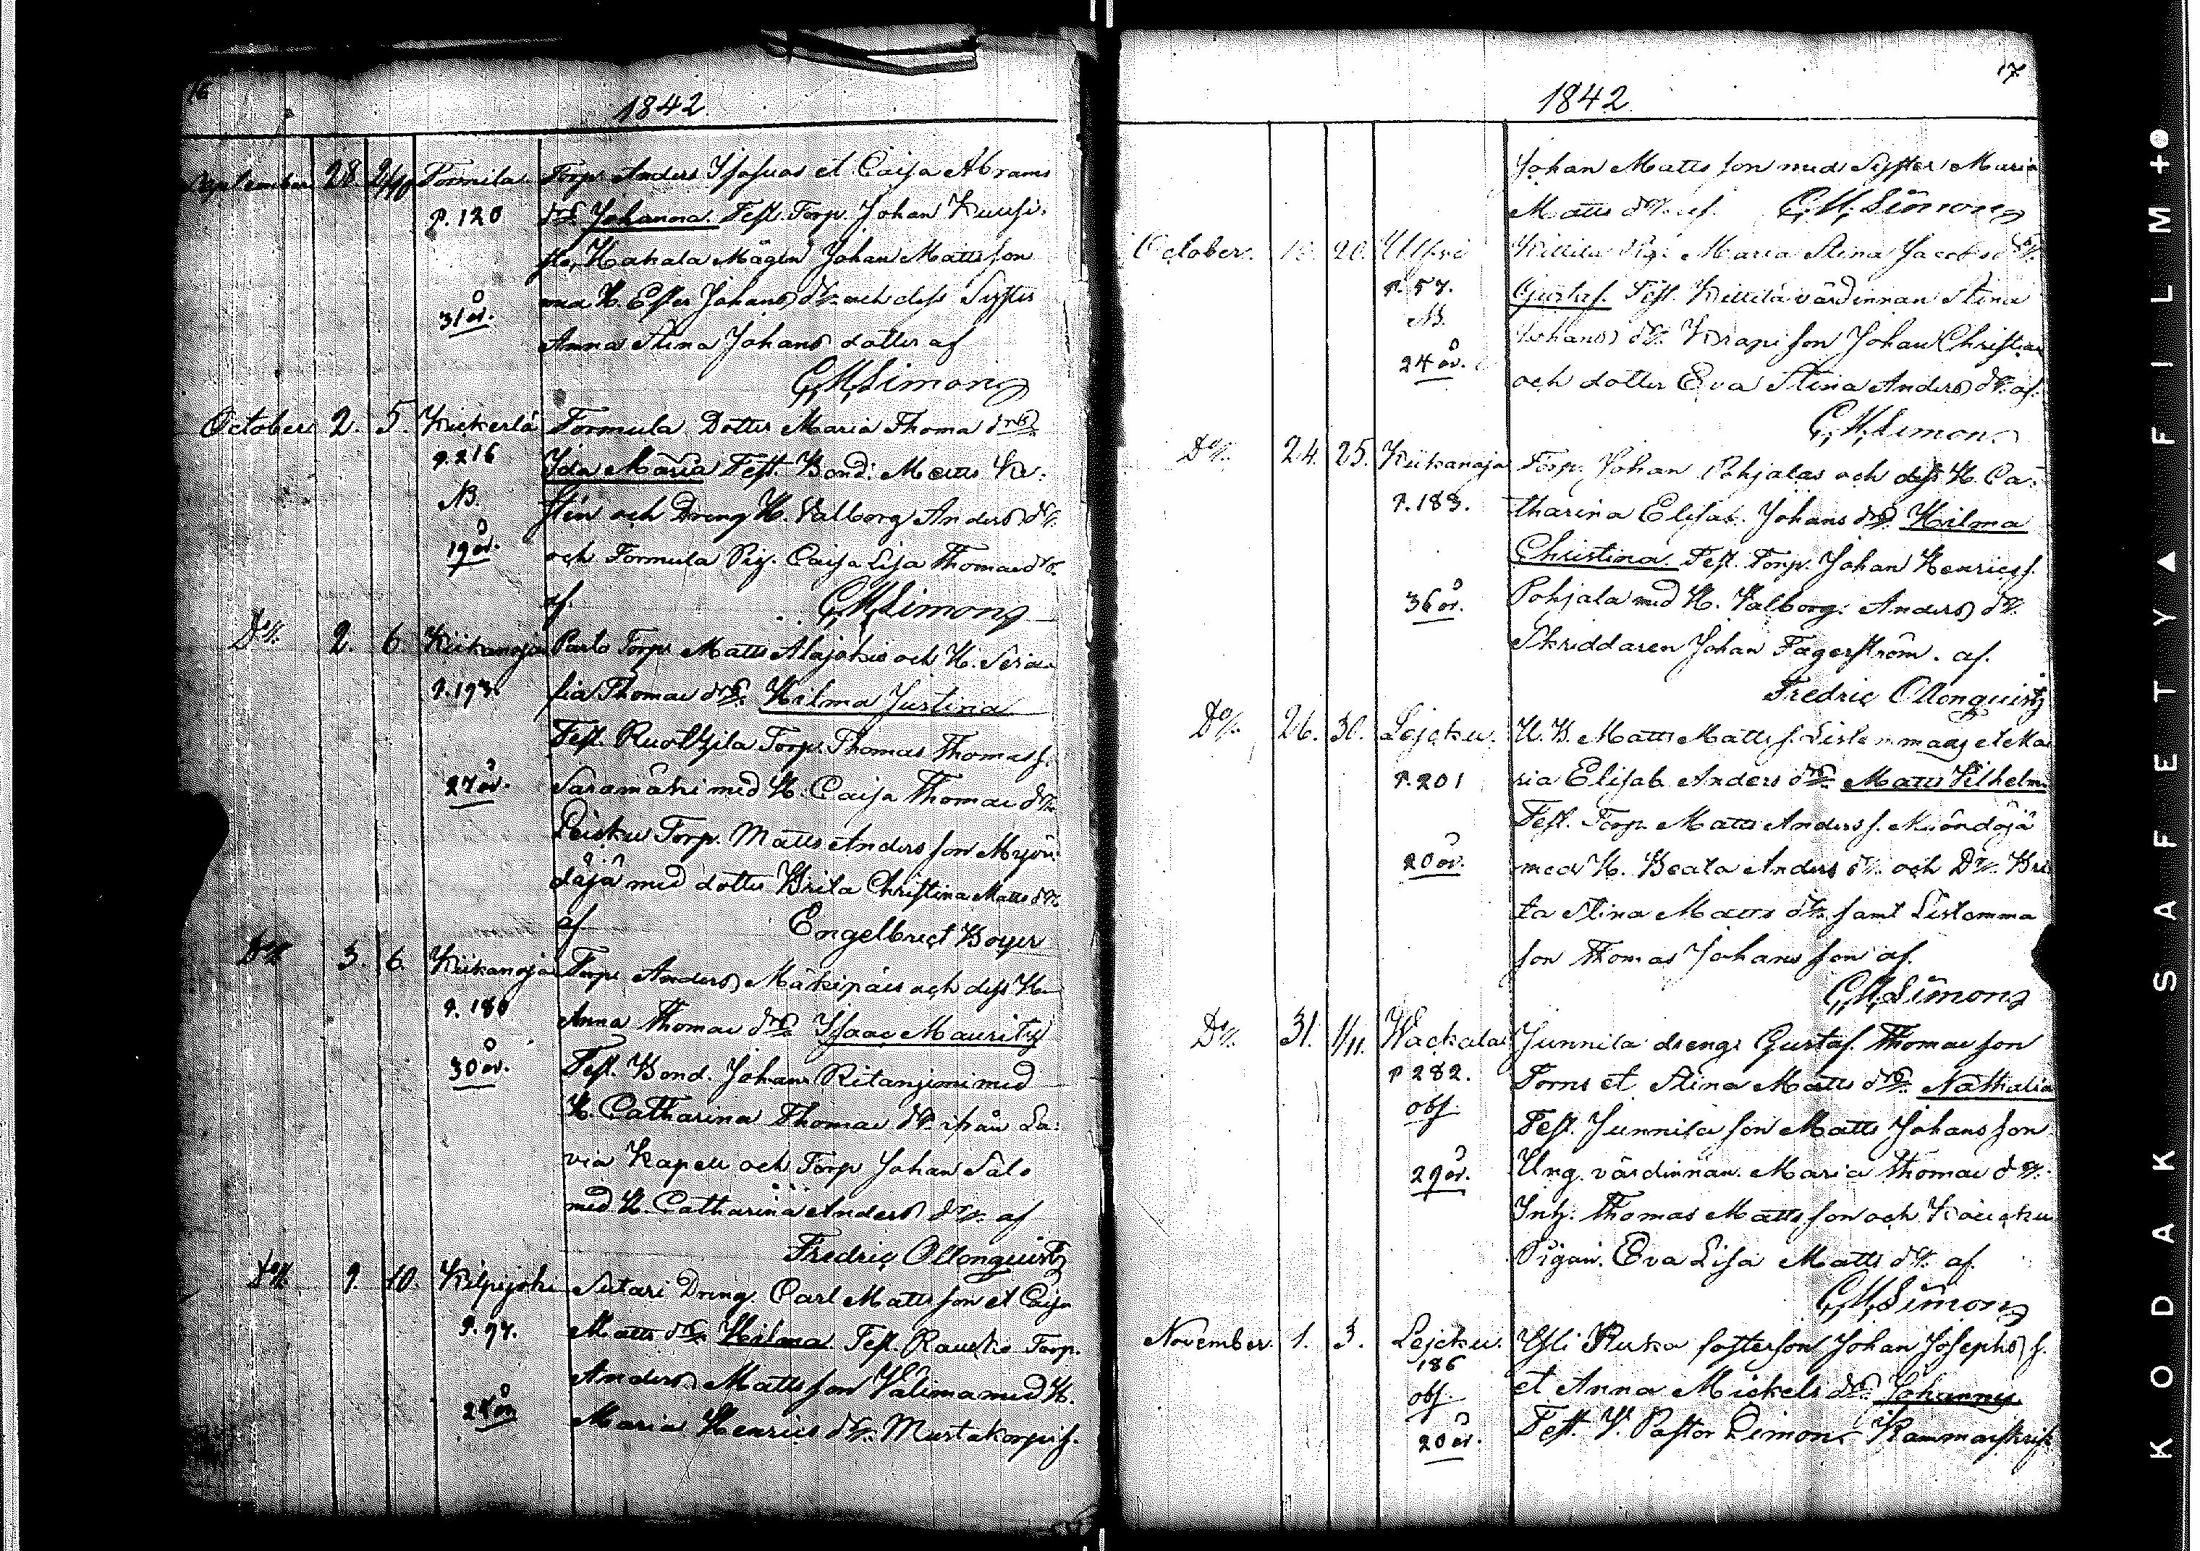 16
1842
September 28. 2/10 Tormila Torp. Anders Isaksons et Caisa Abrams
p. 120 drs. Johanna. Test. Torp. Johan Kuusi.
sto, Hakala Mågen Johan Mattsson
31 år. med H. Ester Johans dr. och dess Syster
Anna Stina Johans dotter af
G. M. Simons
October 2. 5. Kiikerlä Tormula Dotter Maria Thomæ drs.
p. 216 Ida Maria Test. Bond: Matts
NB. och Dreng H. Valborg Anders dr.
19 år. och Tormula Pig. Caisa Lisa Thomæ dr.
af. G. M. Simons
Do 2. 6. Kiikanoja Torp. Matts Alajokis och H. Sera
p. 193. fia Thomæ drs. Hilma Justina
Test. Torp. Thomas Thomæ s.
27 år. Saramäki med H. Caisa Thomæ dr.
Leisku Torp. Matts Andersson Myön
däjä med dotter Brita Christina Matts dr.
af Engelbrect Boyer
Do 3. 6. Kiikanoja Torp. Anders Mäkipäis och dess H.
p. 180 Anna Thomæ drs. Isaac Mauritz
30 år. Test. Bond. Johan Ritanjimi med
H. Catharina Thomæ dr. ifrån La:
via Kapell och Torp. Johan Salo
med H. Catharina Anders dr. af
Fredric Ollonquistz
Do 9. 10. Kilpijoki Sutari Dreng. Carl Mattsson et Caisa
p. 97. Matts drs. Hilma. Test. Torp.
Anders Mattsson Välima med H.
24 år Maria Henrics dr. Mustakorpi s.
17
1842.
Johan Mattsson med Syster Maria
Matts dr. af. G. M. Simons
October. 20. Kittilä Pig. Maria Stina Jacobs dr.
p. 57. Gustaf. Test. Kittilä värdinnan Stina
NB. Johans dr. Krapi son Johan Christian
24 år. och dotter Eva Stina Anders dr. af.
G. M. Simons
Do 24. 25. Kiikanoja Torp. Johan Pohjalas och dess H. Ca:
p. 183. tharina Elisab. Johans drs. Hilma
Christina. Test. Torp. Johan Henrics s.
36 år. Pohjala med H. Valborg: Anders dr.
Skriddaren Johan Fagerström. af.
Fredric Ollonquistz
Do 26. 30. Lejcku. U. B. Matts Matts s. et Ma
p. 201 ria Elisab. Anders drs. Matts Vilhelm
Test. Torp. Matts Anders s. Müöndäjä
20 år. med H. Beata Anders dr. och Dr. Bri
ta Stina Matts dr. samt Listomma
son Thomas Johans son af.
G. M. Simons
Do 31. 1/11. Wackala Junnila dreng. Gustaf. Thomæ son
p 282. Torns et Stina Matts drs. Nathalia
obs. Test. Junnila son Matts Johans son
29 år. Ung. värdinnan. Maria Thomæ dr.
Inh. Thomas Matts son och
Pigan. Eva Lisa Matts dr. af
G. M. Simons
November. 1. 3. Lejcku. Yli Ruka fosterson Johan Josephs s.
186 et Anna Mickels drs. Johannes
obs.
20 år. Test. V. Pastor Simons